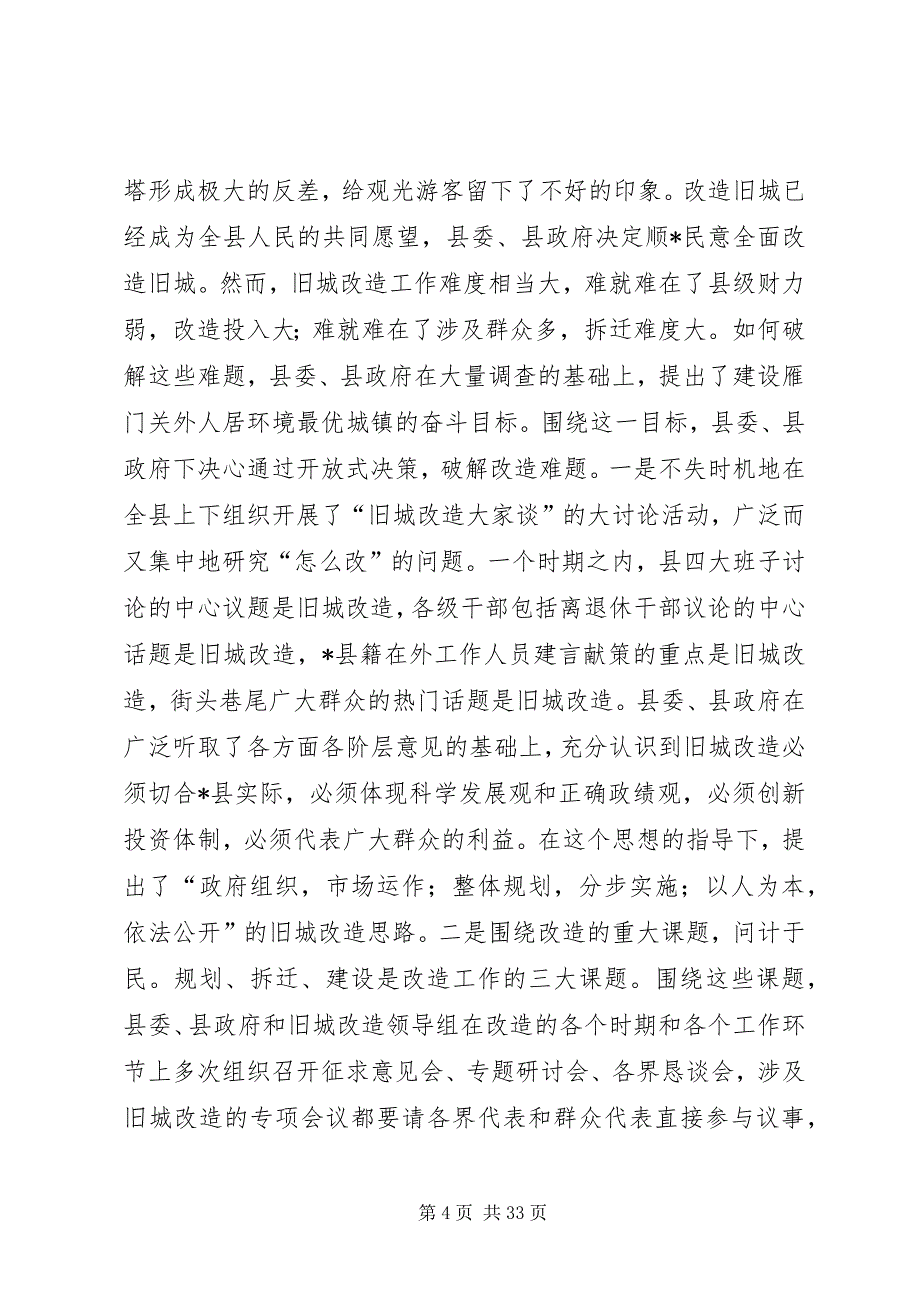 塔形成极大的反差，给观光游客留下了不好的印象。改造旧城已
经成为全县人民的共同愿望，县委、县政府决定顺*民意全面改
造旧城。然而，旧城改造工作难度相当大，难就难在了县级财力
弱，改造投入大；难就难在了涉及群众多，拆迁难度大。如何破
解这些难题，县委、县政府在大量调查的基础上，提出了建设雁
门关外人居环境最优城镇的奋斗目标。围绕这一目标，县委、县
政府下决心通过开放式决策，破解改造难题。一是不失时机地在
全县上下组织开展了“旧城改造大家谈”的大讨论活动，广泛而
又集中地研究“怎么改”的问题。一个时期之内，县四大班子讨
论的中心议题是旧城改造，各级干部包括离退休干部议论的中心
话题是旧城改造，*县籍在外工作人员建言献策的重点是旧城改
造，街头巷尾广大群众的热门话题是旧城改造。县委、县政府在
广泛听取了各方面各阶层意见的基础上，充分认识到旧城改造必
须切合*县实际，必须体现科学发展观和正确政绩观，必须创新
投资体制，必须代表广大群众的利益。在这个思想的指导下，提
出了“政府组织，市场运作；整体规划，分步实施；以人为本，
依法公开”的旧城改造思路。二是围绕改造的重大课题，问计于
民。规划、拆迁、建设是改造工作的三大课题。围绕这些课题，
县委、县政府和旧城改造领导组在改造的各个时期和各个工作环
节上多次组织召开征求意见会、专题研讨会、各界恳谈会，涉及
旧城改造的专项会议都要请各界代表和群众代表直接参与议事，
第 4 页 共 33 页